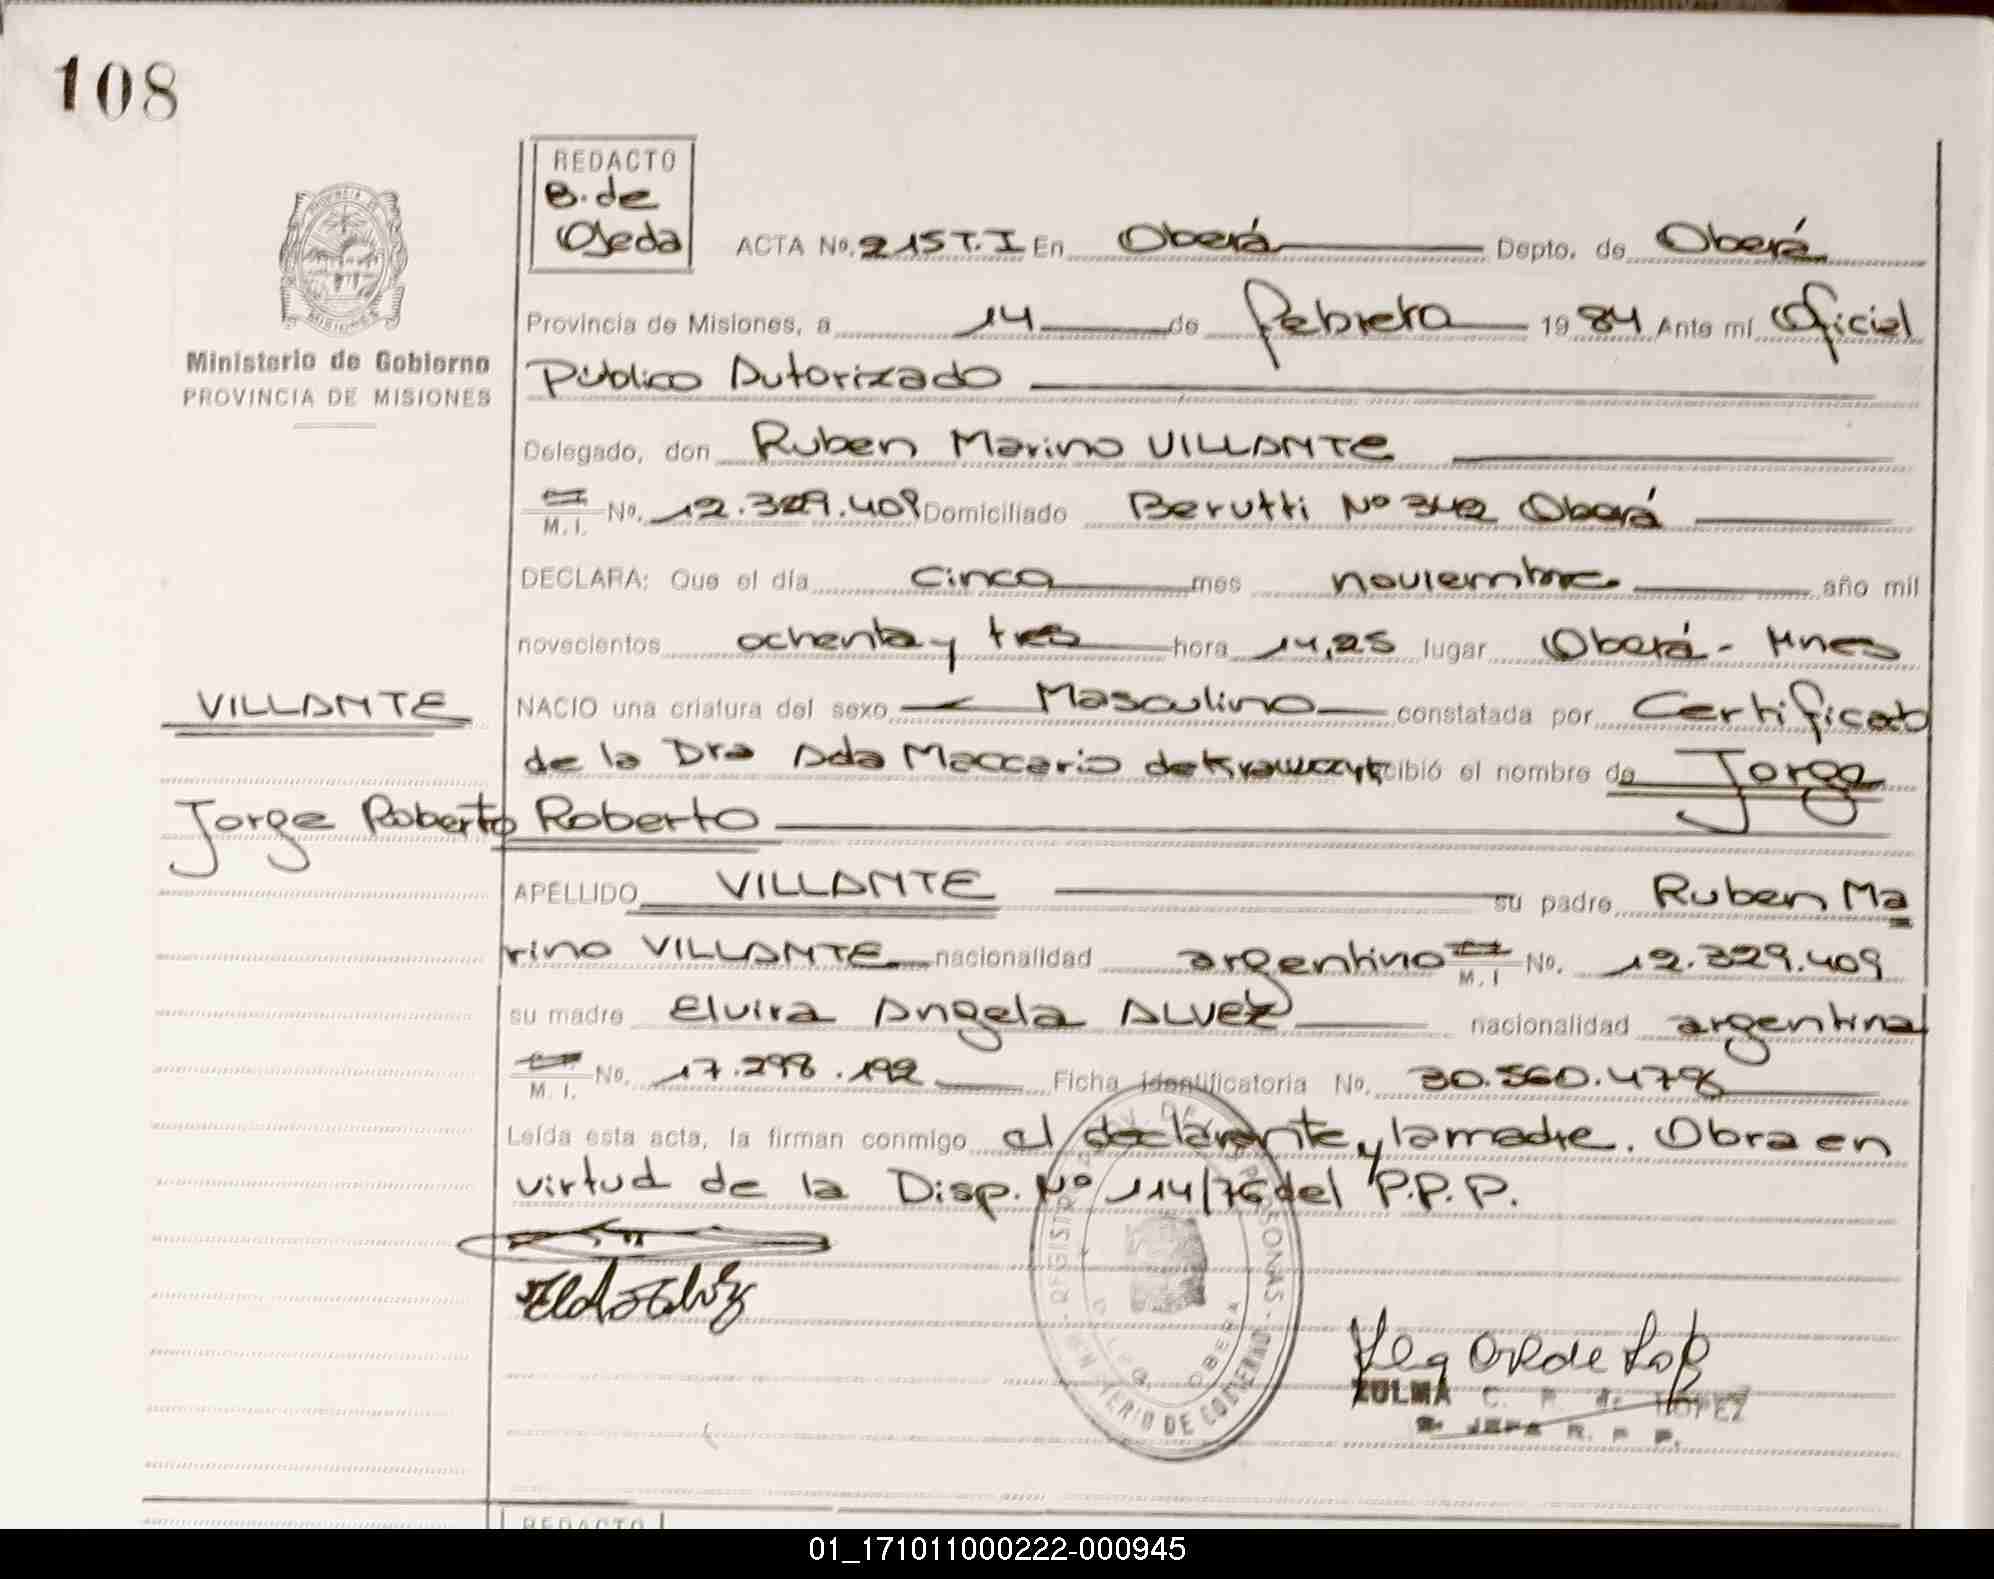 108
REDACTO
B. de
Ojeda
ACTA No. 215 T. I En Oberá Depto. de Oberá
Provincia de Misiones, a 14 de febrero 19 84 Ante mí Oficial
Ministerio de Gobierno
PROVINCIA DE MISIONES
Público Autorizado
Delegado, don Ruben Marino VILLANTE
M. I. No. 12.329.409 Domiciliado Berutti Nº 342 Oberá
DECLARA: Que el día cinco mes noviembre año mil
novecientos ochenta y tres hora 14,25 lugar Oberá - Mnes
VILLANTE
NACIO una criatura del sexo Masculino constatada por Certificado
de la Dra Ada Maccario de Krawczyk cibió el nombre de Jorge
Jorge Roberto
Roberto
APELLIDO VILLANTE su padre Ruben Ma
rino VILLANTE nacionalidad argentino M. I No. 12.329.409
su madre Elvira Angela ALVEZ nacionalidad argentina
M. I. No. 17.298.192 Ficha identificatoria No. 30.560.478
Leída esta acta, la firman conmigo el declarante y la madre. Obra en
virtud de la Disp. Nº 114/76 del P.P.P.
REGISTR DE PERSONAS
DELEG. OBERA
MINISTERIO DE GOBIERNO
ZULMA C. P. de LOPEZ
JEFE R. P. P.
REDACTO
01_171011000222-000945